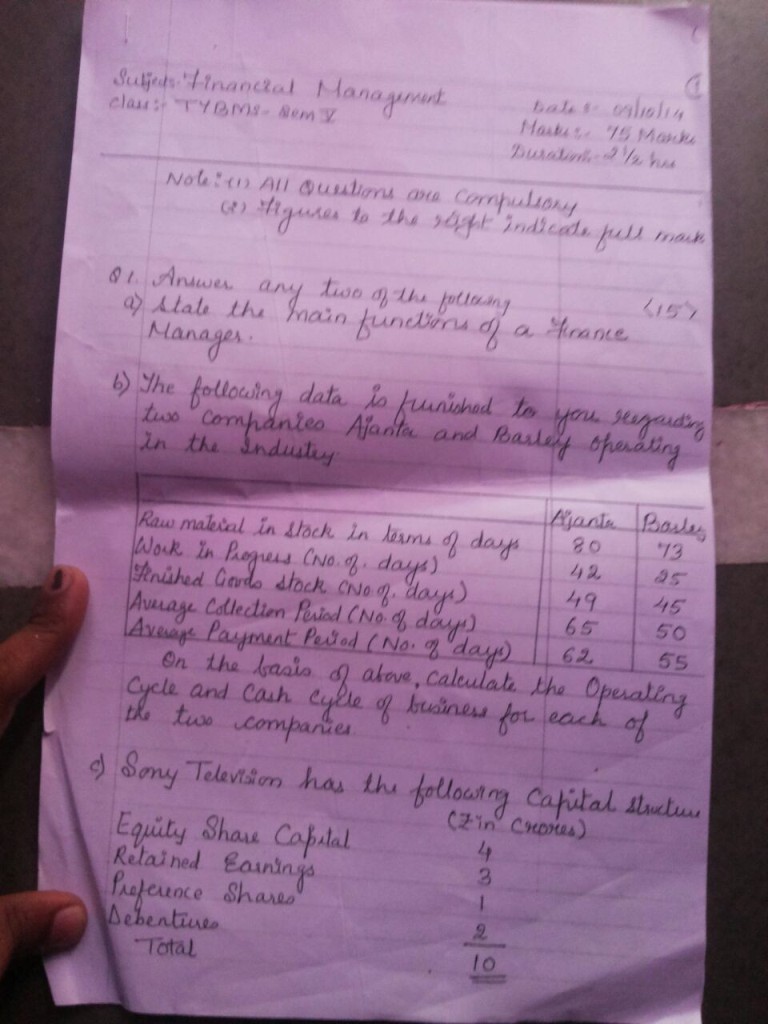 Subject: Financial Management
Class:- TYBMS- Sem V
Date:- 09/10/14
Marks:- 75 Marks
Duration:- 2 1/2 hrs
Note:- (1) All Questions are Compulsory
(2) Figures to the right indicate full mark
Q1. Answer any two of the following (15)
a) State the main functions of a Finance
Manager.
b) The following data is furnished to you regarding
two companies Ajanta and Barley operating
in the Industry
Ajanta Barley
Raw material in stock in terms of days 80 73
Work In Progress (No. of. days) 42 25
Finished Goods Stock (No of. days) 49 45
Average Collection Period (No. of days) 65 50
Average Payment Period (No. of days) 62 55
On the basis of above, calculate the Operating
Cycle and Cash Cycle of business for each of
the two companies
c) Sony Television has the following Capital structure
(₹ in Crores)
Equity Share Capital 4
Retained Earnings 3
Preference Shares 1
Debentures 2
Total 10